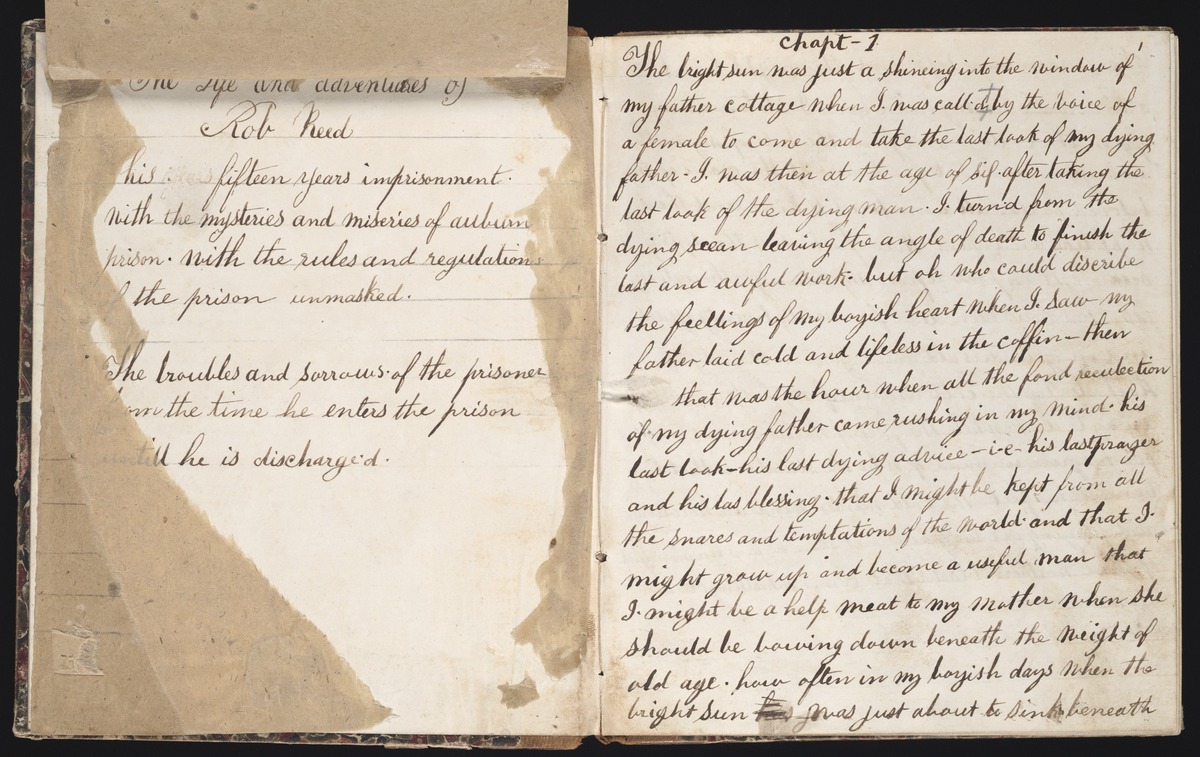 The Life and adventures of
Rob Reed
his fifteen years imprisonment.
With the mysteries and miseries of auburn
prison. With the rules and regulations
the prison unmasked.
The troubles and sorrows of the prisoner
from the time he enters the prison
till he is discharge'd.
Chapt-1
1
The bright sun was just a shineing into the window of
my father cottage when I was call'd by the voice of
a female to come and take the last look of my dying
father- I was then at the age of six. after taking the
last look of the dying man. I turn'd from the
dying scean leaving the angle of death to finish the
last and awful work. but oh who could discribe
the feellings of my boyish heart when I saw my
father laid cold and lifeless in the coffin- then
that was the hour when all the fond recolection
of my dying father came rushing in my mind. his
last look-his last dying advice- i-e- his last prayer
and his las blessing. that I might be kept from all
the snares and temptations of the world. and that I.
might grow up and become a useful man that
I might be a help meat to my mother when she
should be bowing down beneath the weight of
old age. how often in my boyish days when the
bright sun was just about to sink beneath